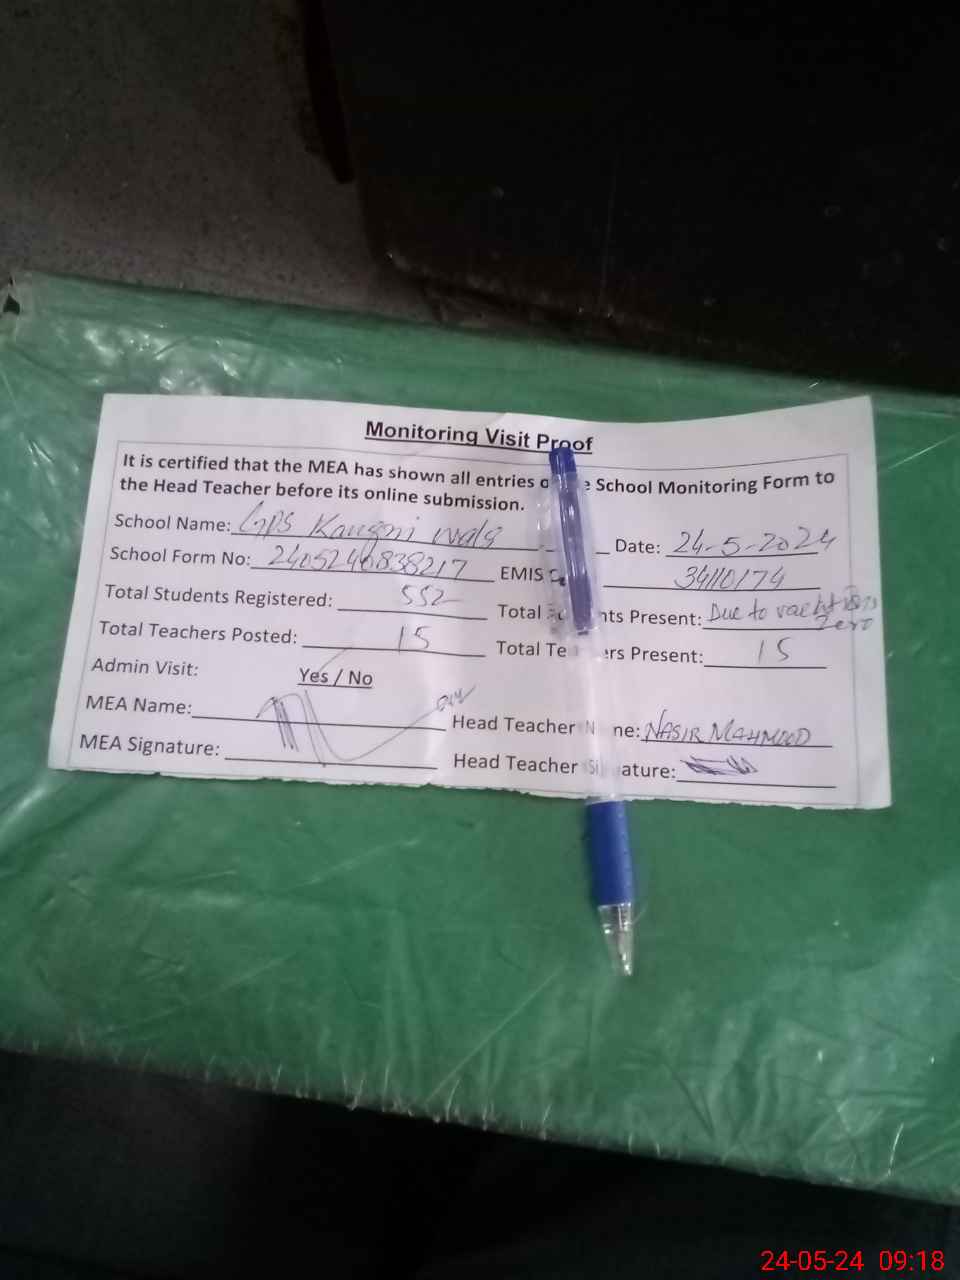 Monitoring Visit Proof
It is certified that the MEA has shown all entries o e School Monitoring Form to
the Head Teacher before its online submission.
School Name: GPS Kangni wala Date: 24-5-2024
School Form No: 2405240838217 EMIS 34110174
Total Students Registered: 552 Total nts Present: Due to vacations Zero
Total Teachers Posted: 15 Total Te rs Present: 15
Admin Visit: Yes / No
MEA Name: Head Teacher N ne: NASIR MAHMOOD
MEA Signature: Head Teacher Si ature:
24-05-24 09:18